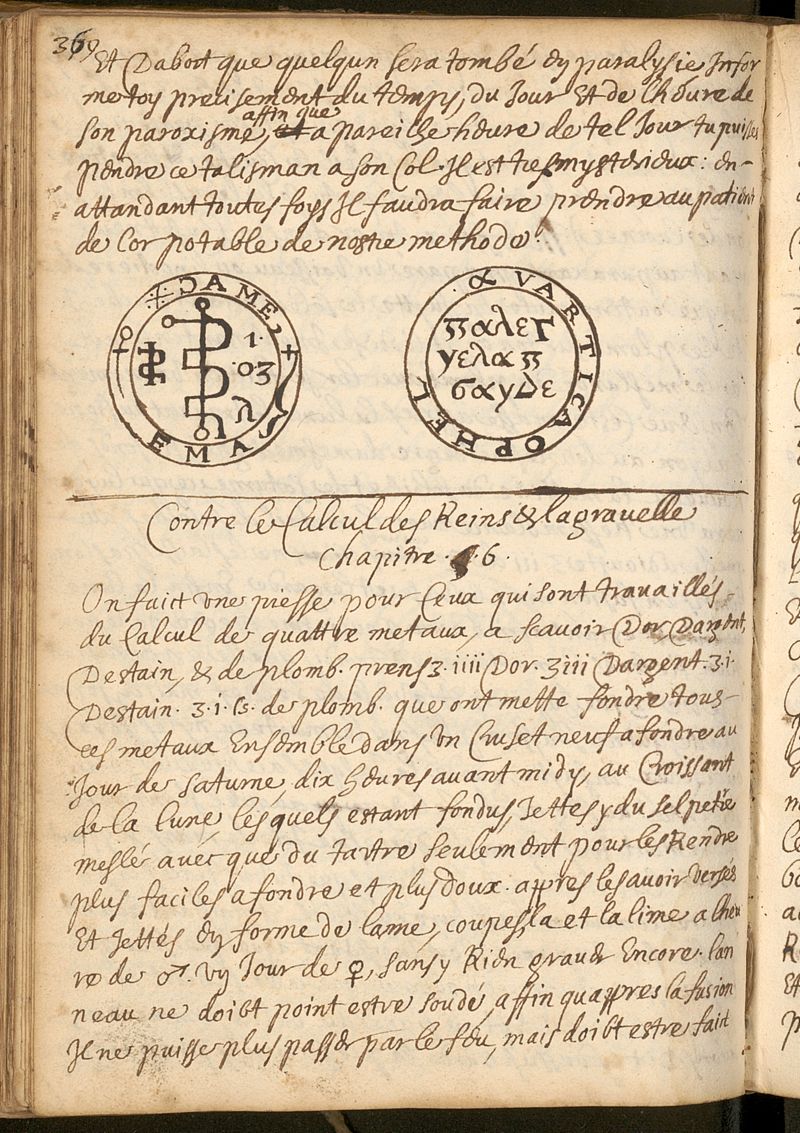 369
Et Dabort que quelqun sera tombé en paralysie Infor
me toy precisement du temps, du Jour Et de Lheure de
affin que
son paroxisme, et a pareilhe heure de tel Jour tu puisses
pendre ce talisman a son Col. Il est tres mysterieux: en-
attandant toutes foys Il faudra faire prendre au patient
de Lor potable de nostre methode.
DAMEZ
1.
03
λ
EMAS
α VARTICAOPHEL
παλεγ
γελαπ
σαγδε
Contre le Calcul des Reins & la gravelle
Chapitre . 6.
On faict une piesse pour Ceux qui sont travaillés
du Calcul de quattre metaux, a scavoir Dor, Dargent,
Destain, & de plomb. prens ʒ. iiii Dor. ʒiii Dargent. ʒ.i.
Destain. ʒ.i.ß. de plomb. que ont mette fondre tous-
ces metaux Ensemble dans Un Cruset neuf a fondre au
Jour de saturne, dix heures avant midy, au Croissant
de la lune, lesquels estant fondus, Jettes y du selpetre
meslé avecque du tartre seulement pour les Rendre
plus faciles a fondre et plus doux. appres les avoir versés
Et Jettés en forme de lame, coupes la et la lime a lheu
re de ♂. un Jour de ♀, sans y Rien graver Encore. lan
neau ne doibt point estre soudé, affin quappres la fusion
Il ne puisse plus passer par le feu, mais doibt estre faict